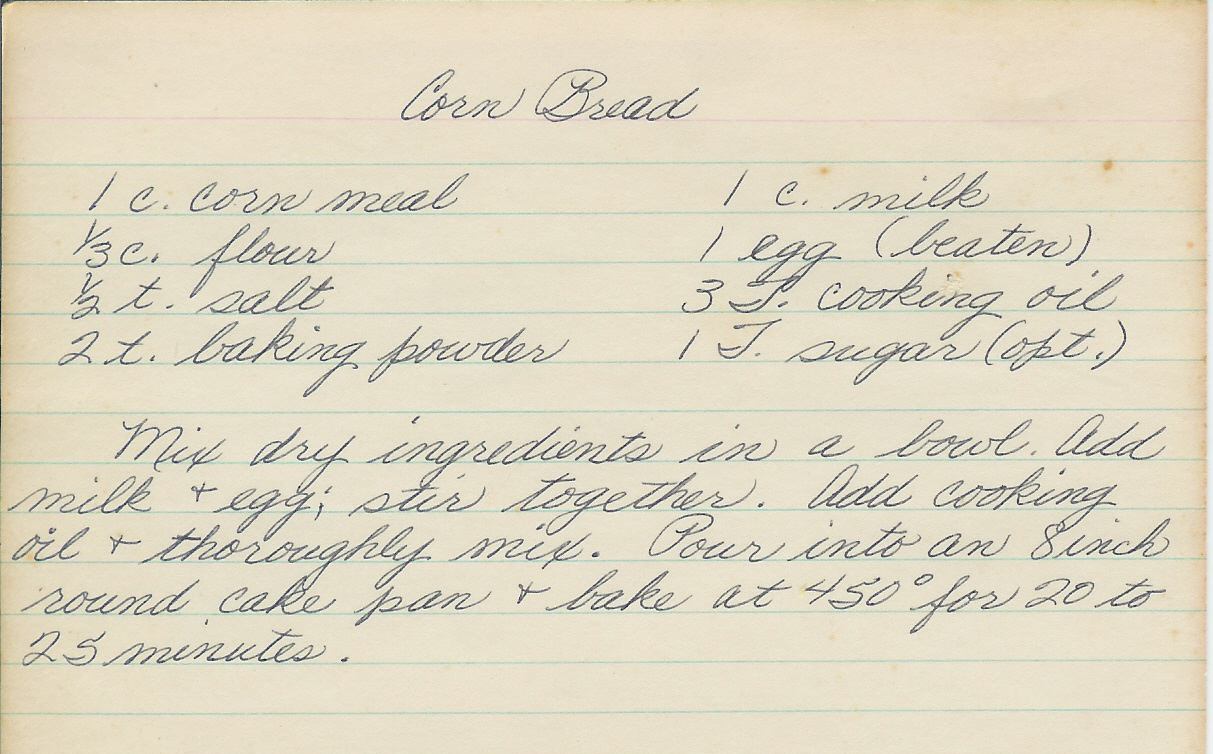 Corn Bread
1 c. corn meal 1 c. milk
1/3 c. flour 1 egg (beaten)
1/2 t. salt 3 T. cooking oil
2 t. baking powder 1 T. sugar (opt.)
Mix dry ingredients in a bowl. Add
milk + egg; stir together. Add cooking
oil + thoroughly mix. Pour into an 8 inch
round cake pan + bake at 450° for 20 to
25 minutes.